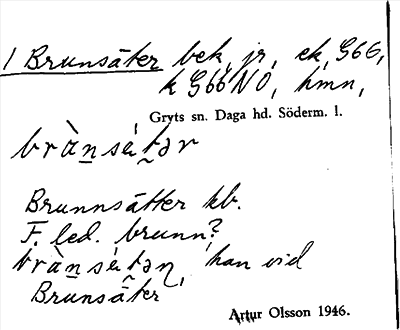 1 Brunsäter bek, jr, ek, G6G,
k G66NO, hmn,
Gryts sn. Daga hd. Söderm. l.
bràn̲sétər
Brunnsätter kb.
F. led. brunn?
bràn̲sétən, han vid
Brunsäter
Artur Olsson 1946.